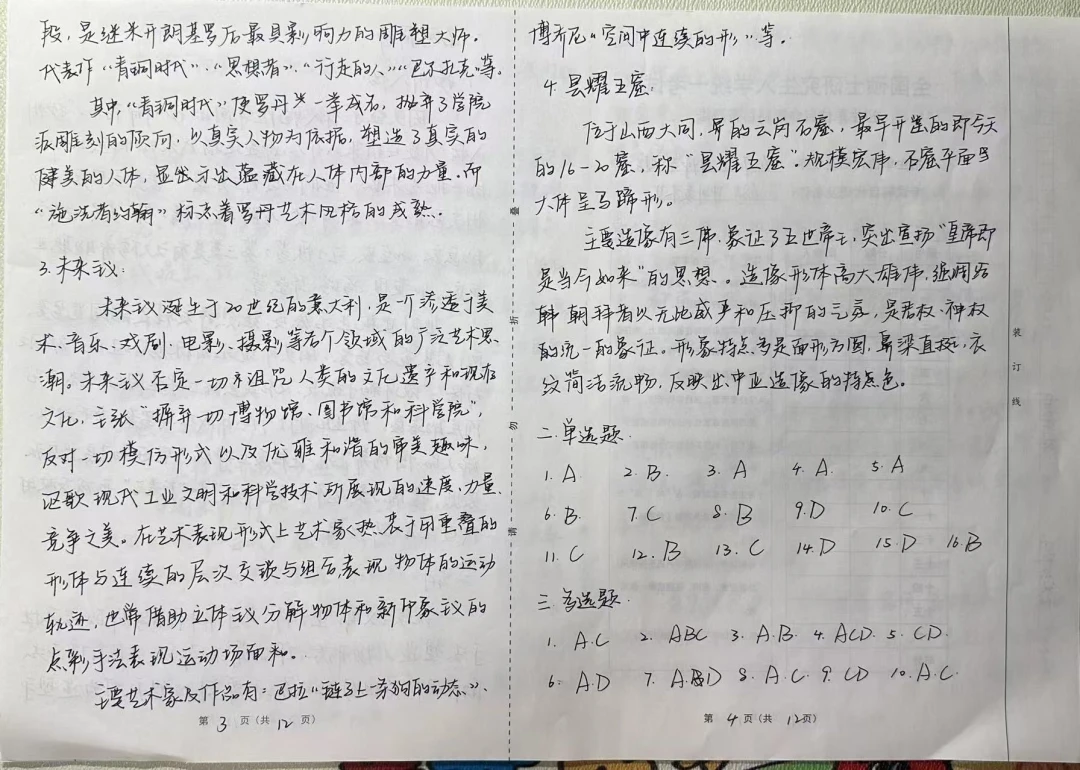 段，是继米开朗基罗后最具影响力的雕塑大师。
代表作“青铜时代”、“思想者”、“行走的人”、“巴尔扎克”等。
其中，“青铜时代”使罗丹一举成名，抛弃了学院
派雕刻的倾向，以真实人物为依据，塑造了真实的
健美的人体，显示出蕴藏在人体内部的力量。而
“施洗者约翰”标志着罗丹艺术风格的成熟。
3. 未来主义：
未来主义诞生于20世纪的意大利，是一个渗透于美
术、音乐、戏剧、电影、摄影等各个领域的广泛艺术思
潮。未来主义否定一切并诅咒人类的文化遗产和现存
文化，主张“摒弃一切博物馆、图书馆和科学院”，
反对一切模仿形式以及优雅和谐的审美趣味，
讴歌现代工业文明和科学技术所展现的速度、力量、
竞争之美。在艺术表现形式上艺术家热衷于用重叠的
形体与连续的层次交错与组合表现物体的运动
轨迹，也常借助立体主义分解物体和新印象主义的
点彩手法表现运动场面和。
主要艺术家及作品有：巴拉“链子上一条狗的动态”、
第 3 页（共 12 页）
叠
折
勿
请
博乔尼“空间中连续的形”等。
4. 昙曜五窟：
位于山西大同，的云岗石窟，最早开凿的即今天
的16-20窟，称“昙曜五窟”。规模宏伟，石窟平面
大体呈马蹄形。
主要造像有三佛，象证了五世帝王，突出宣扬“皇帝即
是当今如来”的思想。造像形体高大雄伟，
朝拜者以无比威严和压抑的，是君权、神权
的统一的象证。形象特点是面形方圆，鼻梁直挺，衣
纹简洁流畅，反映出中亚造像的特点色。
二. 单选题.
1. A 2. B. 3. A 4. A. 5. A
6. B 7. C 8. B 9. D 10. C
11. C 12. B 13. C 14. D 15. D 16. B
三. 多选题.
1. A.C 2. ABC 3. A.B. 4. ACD. 5. CD.
6. A.D 7. A.BD 8. A.C. 9. CD 10. A.C.
第 4 页（共 12页）
装
订
线